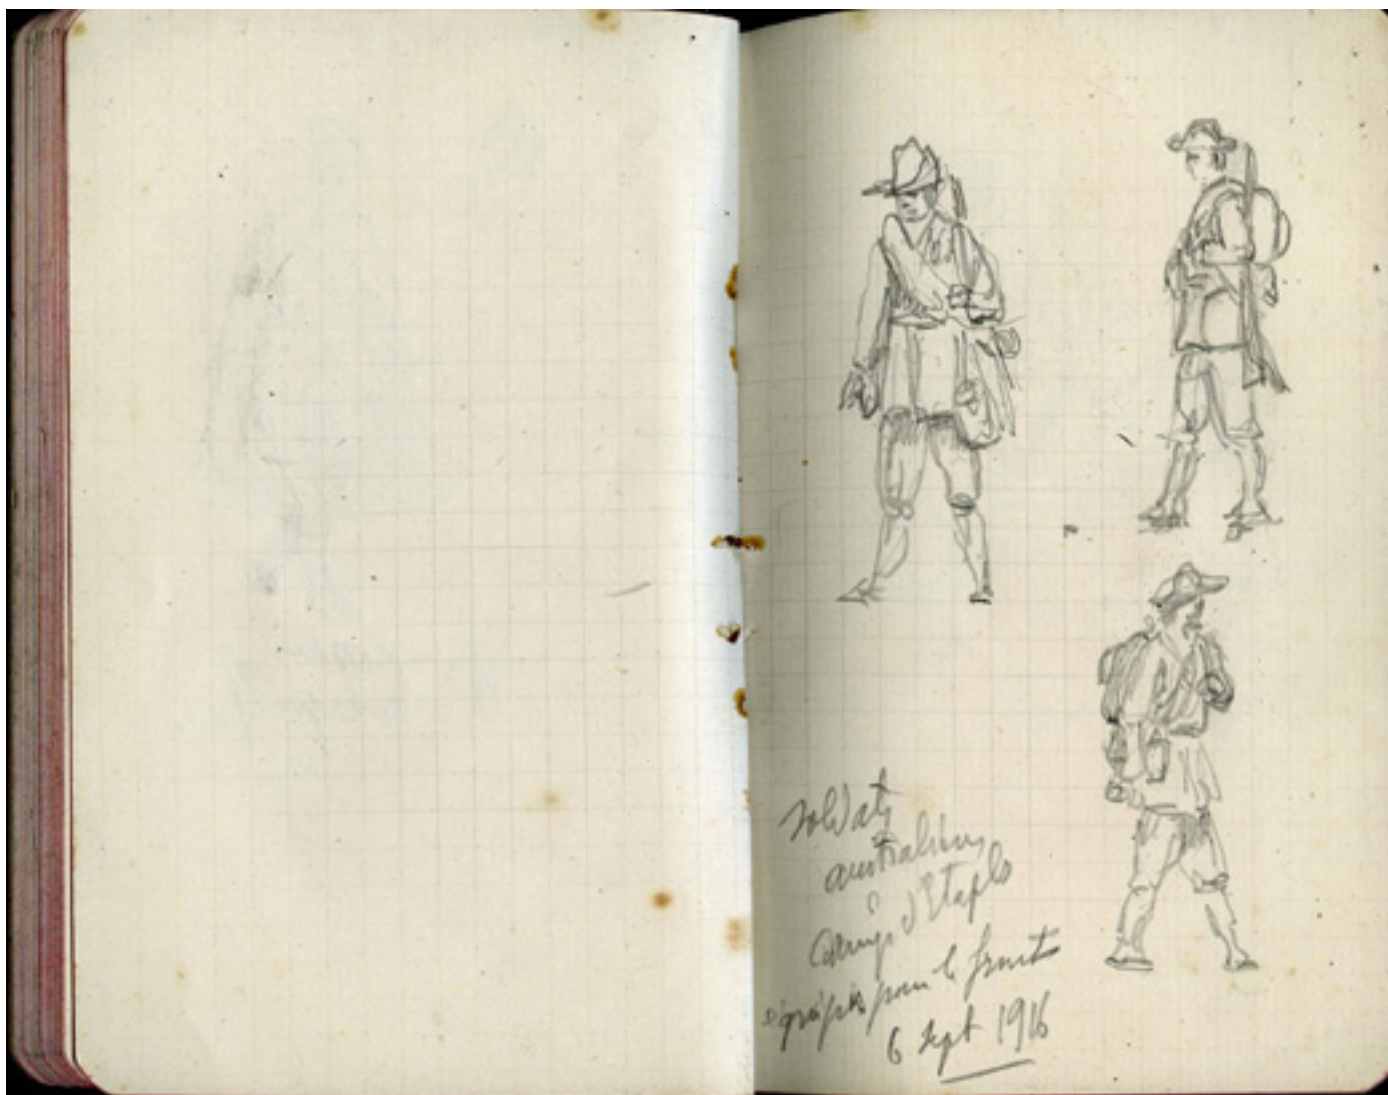 soldats
australiens
camp d'Etaples
équipés pour le front
6 Sept 1916